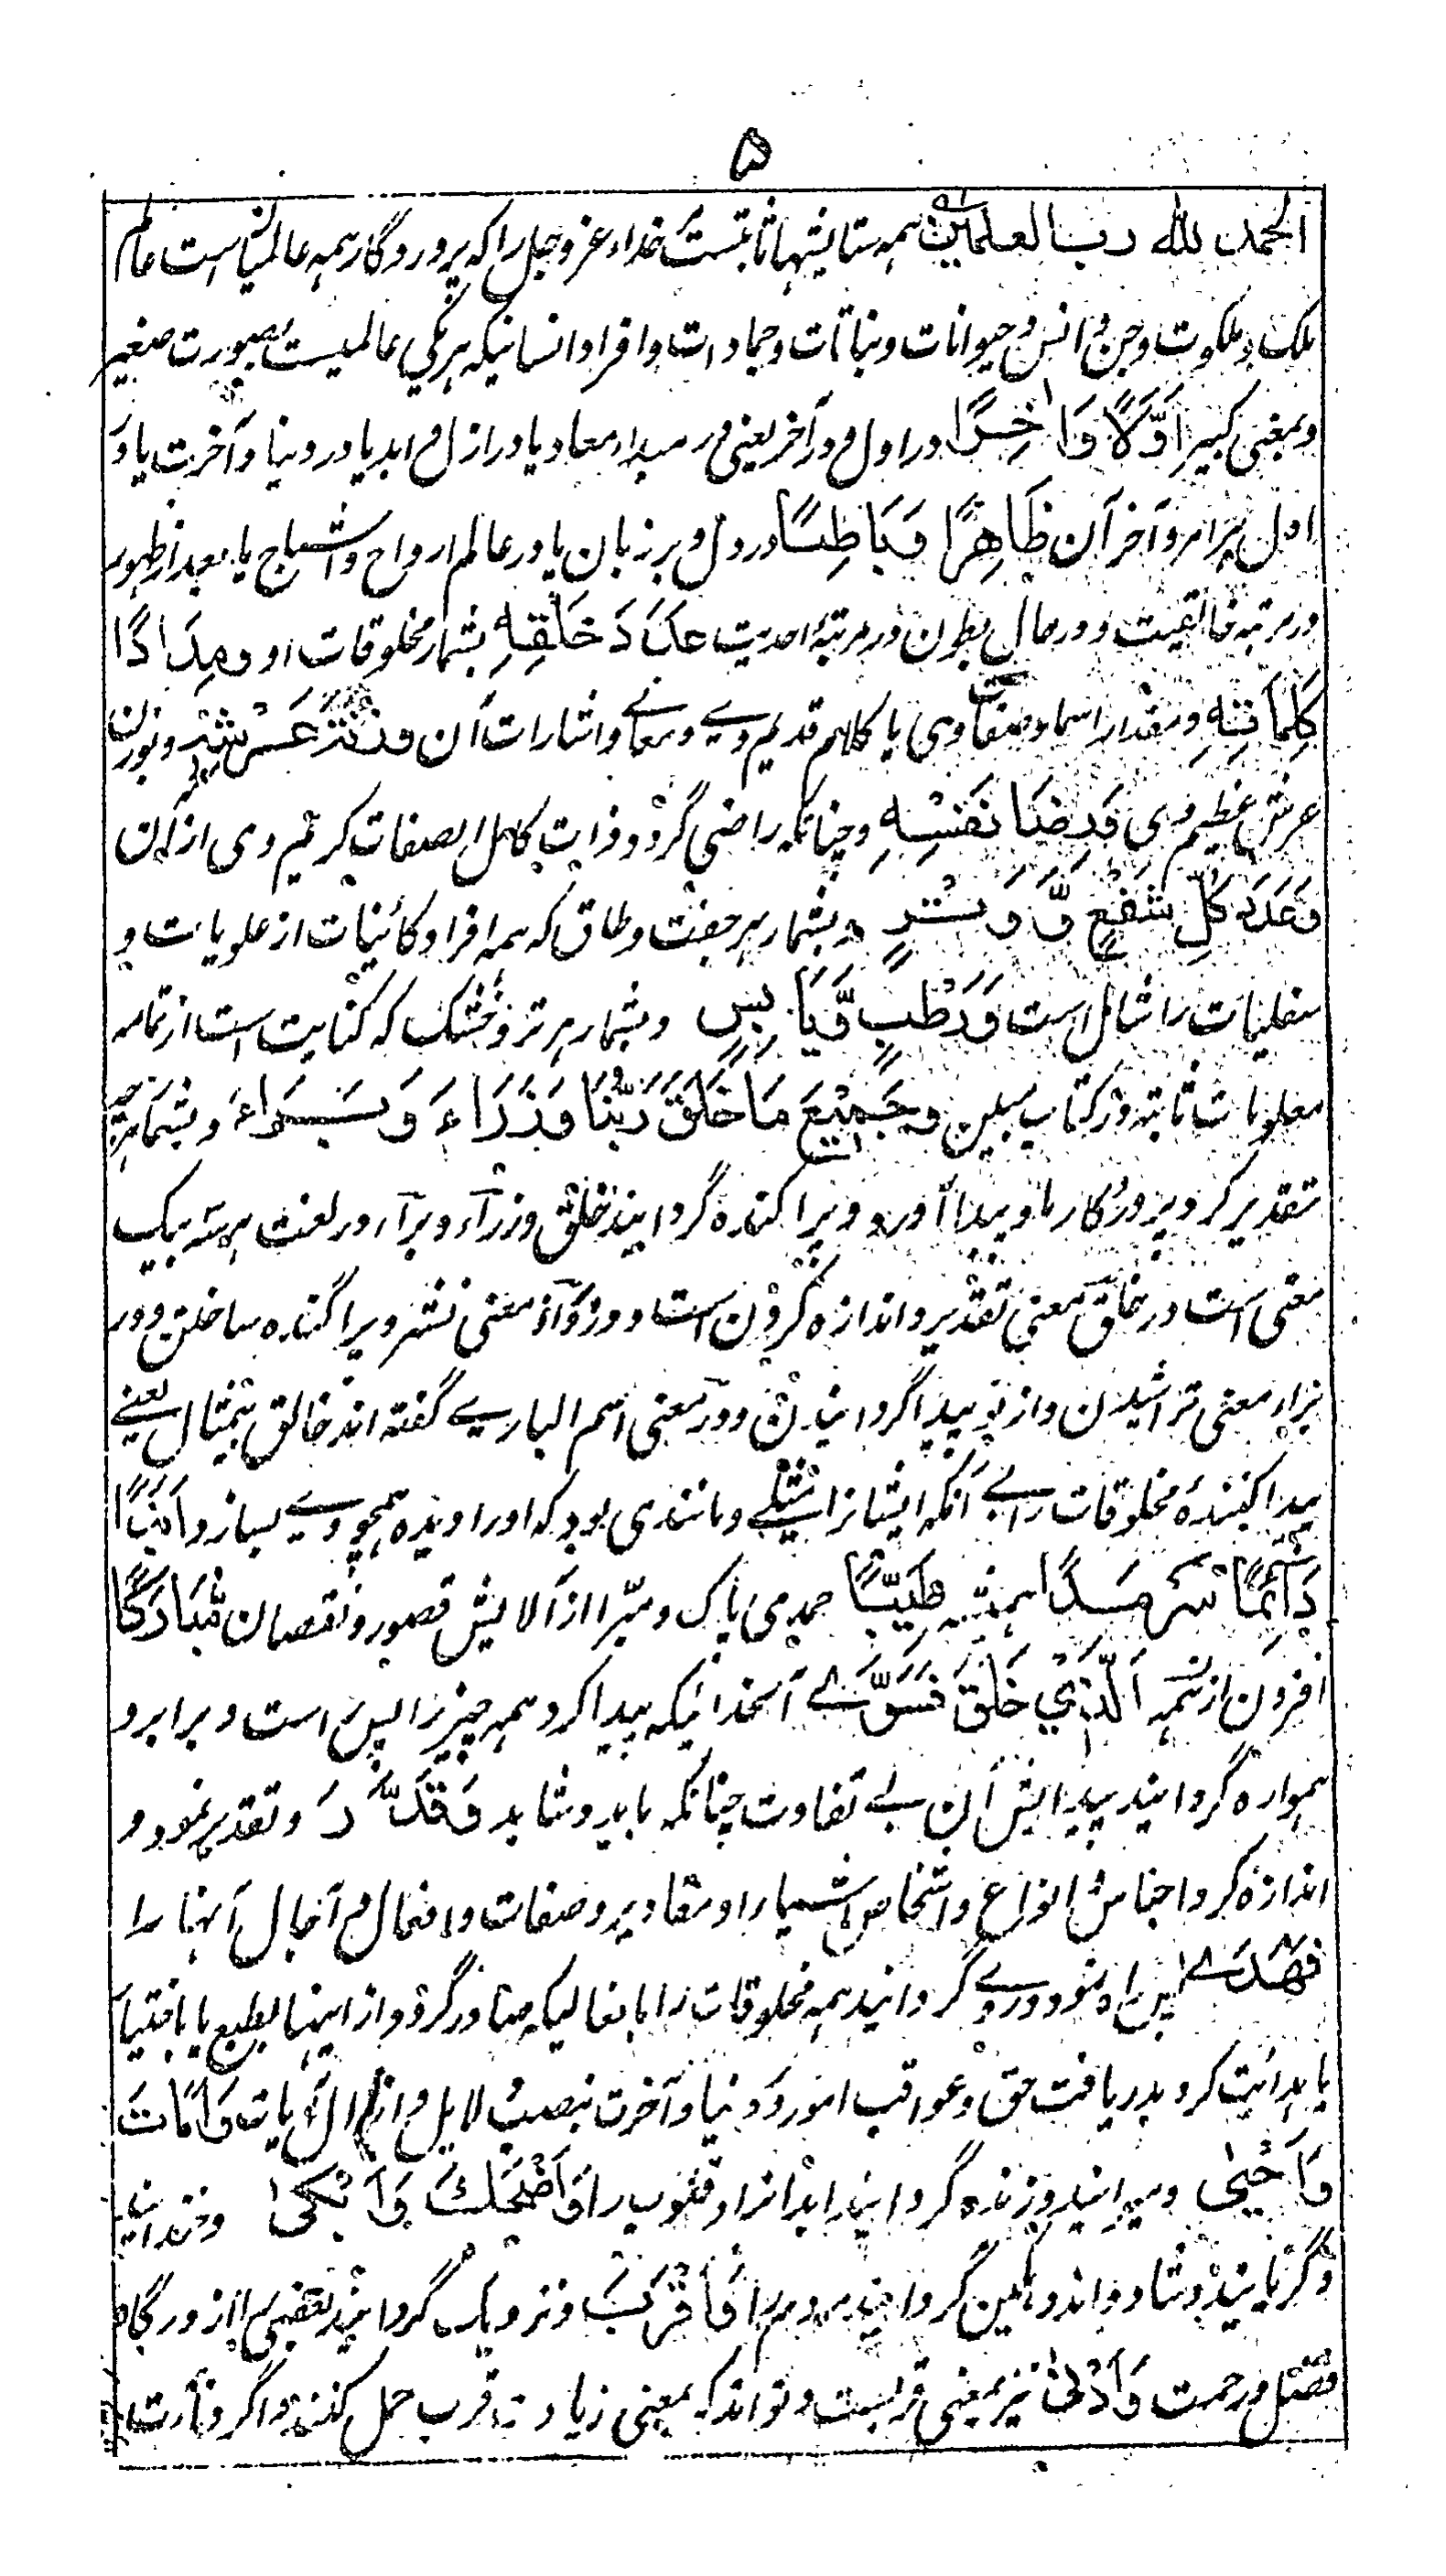 ۵
الحمد لله رب العلمین همه ستایشها ثابتست خداء عز و جل را که پروردگار همه عالمیانست عالم
ملک و ملکوت و جن و انس و حیوانات و نباتات و جمادات و افراد انسانیکه هر یکی عالمیست بصورت صغیر
و بمعنی کبیر اَوَّلًا وَاٰخِرًا در اول و در آخر یعنی در مبدا و معاد یا در ازل و ابد یا در دنیا و آخرت یا در
اول هر امر و آخر آن ظَاهِرًا وَبَاطِنًا در دل و بر زبان یا در عالم ارواح و اشباح یا بعد از ظهور
در مرتبه خالقیت و در حال بطون در مرتبۀ احدیت عَدَدَ خَلْقِهِ بشمار مخلوقات او وَمِدَادَ
كَلِمَاتِهِ و مقدار اسما و صفات وی یا کلام قدیم وے و معانے و اشارات آن وَزِنَةَ عَرْشِهِ و بوزن
عرش عظیم وی وَرِضَا نَفْسِهِ و چنانکه راضی گردد ذات کامل الصفات کریم وی ازان
وَعَدَدَ كُلِّ شَفْعٍ وَّ وَتْرٍ و بشمار هر جفت و طاق که همه افراد کائنات از علویات و
سفلیات را شامل است وَرَطْبٍ وَّيَابِسٍ و بشمار هر تر و خشک که کنایت است از تمامه
معلومات ثابته در کتاب مبین وَجَمِيْعَ مَا خَلَقَ رَبُّنَا وَذَرَاءَ وَبَرَاءَ و بشمار هرچه
تقدیر کرد پروردگار ما و پیدا آورد و پراکنده گردانید خلق و ذراء و براء در لغت هرسه بیک
معنی است در خلق معنی تقدیر و اندازه کردن است و در ذراء معنی نشر و پراگنده ساختن و در
براء معنی تراشیدن و از نو پیدا گردانیدن و در معنی اسم الباری گفته اند خالق بیمثال یعنے
پیدا کنندۀ مخلوقات را بے آنکه ایشانرا مثلے و مانندی بود که او را دیده همچو وے بسازد اَبَدًا
دَآئِمًا سَرْمَدًا همیشه طَيِّبًا حمدی پاک و مبرّا از آلایش قصور و نقصان مُّبَارَكًا
افزون از همه اَلَّذِيْ خَلَقَ فَسَوّٰے آنخدائیکه پیدا کرد همه چیز را پس راست و برابر و
هموار گردانید پیدایش آن بے تفاوت چنانکه باید و شاید وَقَدَّرَ و تقدیر نمود و
اندازه کرد اجناس و انواع و اشخاص اشیا را و مقادیر و صفات و افعال و آجال آنها را
فَهَدٰے پس راه نمود و روے گردانید همه مخلوقات را بافعالیکه صادر گردد از اینها بطبع یا باختیار
یا هدایت کرد بدریافت حق و عواقب امور در دنیا و آخرت بنصب دلایل و انزال آیات وَاَمَاتَ
وَاَحْيٰى و میرانید و زنده گردانید ابدانرا و قلوب را وَاَضْحَكَ وَاَبْكٰى و خندانید
و گریانید و شاد و اندوهگین گردانید مردم را وَاَقْرَبَ و نزدیک گردانید بعضی را از درگاه
فضل و رحمت وَاَدْنٰى نیز بمعنی قربست و تواند که بمعنی زیادت قرب حمل کنند و اگر